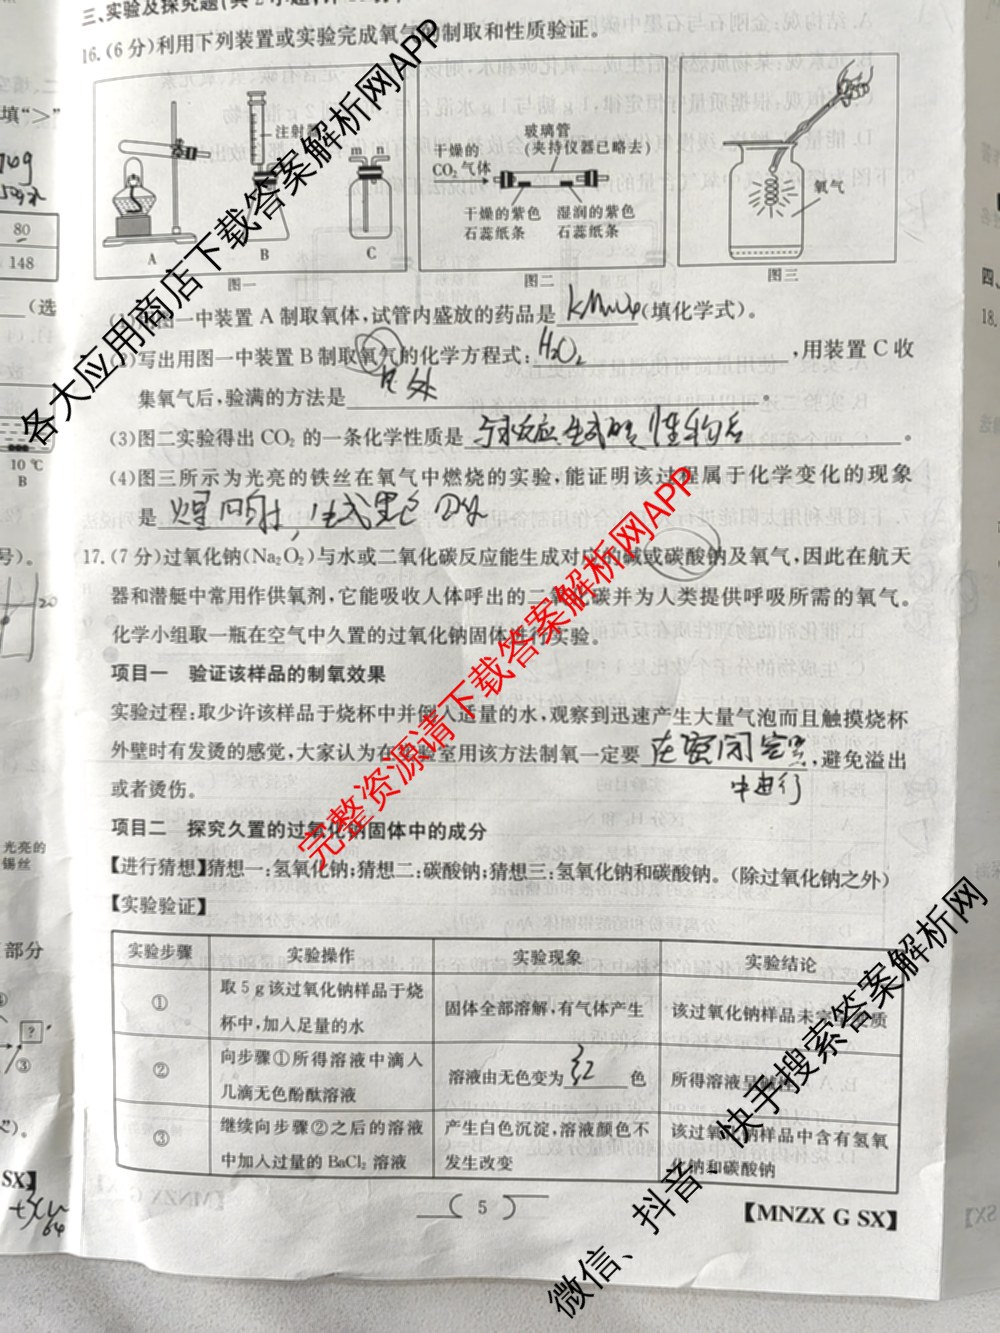 三、实验及探究题(共2小题,
16.(6分)利用下列装置或实验完成氧气的制取和性质验证。
注射器
m
A
B
C
图一
干燥的
CO₂气体
玻璃管
(夹持仪器已略去)
干燥的紫色
石蕊纸条
湿润的紫色
石蕊纸条
图二
氧气
图三
图一中装置A制取氧气,试管内盛放的药品是 KMnO₄ (填化学式)。
(2)写出用图一中装置B制取氧气的化学方程式: H₂O₂ ,用装置C收
集氧气后,验满的方法是
(3)图二实验得出CO₂的一条化学性质是 与水反应生成 性物质 。
(4)图三所示为光亮的铁丝在氧气中燃烧的实验,能证明该过程属于化学变化的现象
是 , 生成黑色固体
17.(7分)过氧化钠(Na₂O₂)与水或二氧化碳反应能生成对应的碱或碳酸钠及氧气,因此在航天
器和潜艇中常用作供氧剂,它能吸收人体呼出的二氧化碳并为人类提供呼吸所需的氧气。
化学小组取一瓶在空气中久置的过氧化钠固体进行实验。
项目一 验证该样品的制氧效果
实验过程:取少许该样品于烧杯中并倒入适量的水,观察到迅速产生大量气泡而且触摸烧杯
外壁时有发烫的感觉,大家认为在实验室用该方法制氧一定要 在密闭容器 ,避免溢出
中进行
或者烫伤。
项目二 探究久置的过氧化钠固体中的成分
【进行猜想】猜想一:氢氧化钠;猜想二:碳酸钠;猜想三:氢氧化钠和碳酸钠。(除过氧化钠之外)
【实验验证】
实验步骤 实验操作 实验现象 实验结论
① 取5g该过氧化钠样品于烧杯中,加入足量的水 固体全部溶解,有气体产生 该过氧化钠样品未完全变质
② 向步骤①所得溶液中滴入几滴无色酚酞溶液 溶液由无色变为 红 色 所得溶液呈碱性
③ 继续向步骤②之后的溶液中加入过量的BaCl₂溶液 产生白色沉淀,溶液颜色不发生改变 该过氧化钠样品中含有氢氧化钠和碳酸钠
( 5 )
【MNZX G SX】
填“>”
80
148
(选
10℃
B
号)。
20
光亮的
锡丝
部分
?
③
SX】
四、
18.
各大应用商店下载答案解析网APP
完整资源请下载答案解析网APP
微信、抖音、快手搜索答案解析网